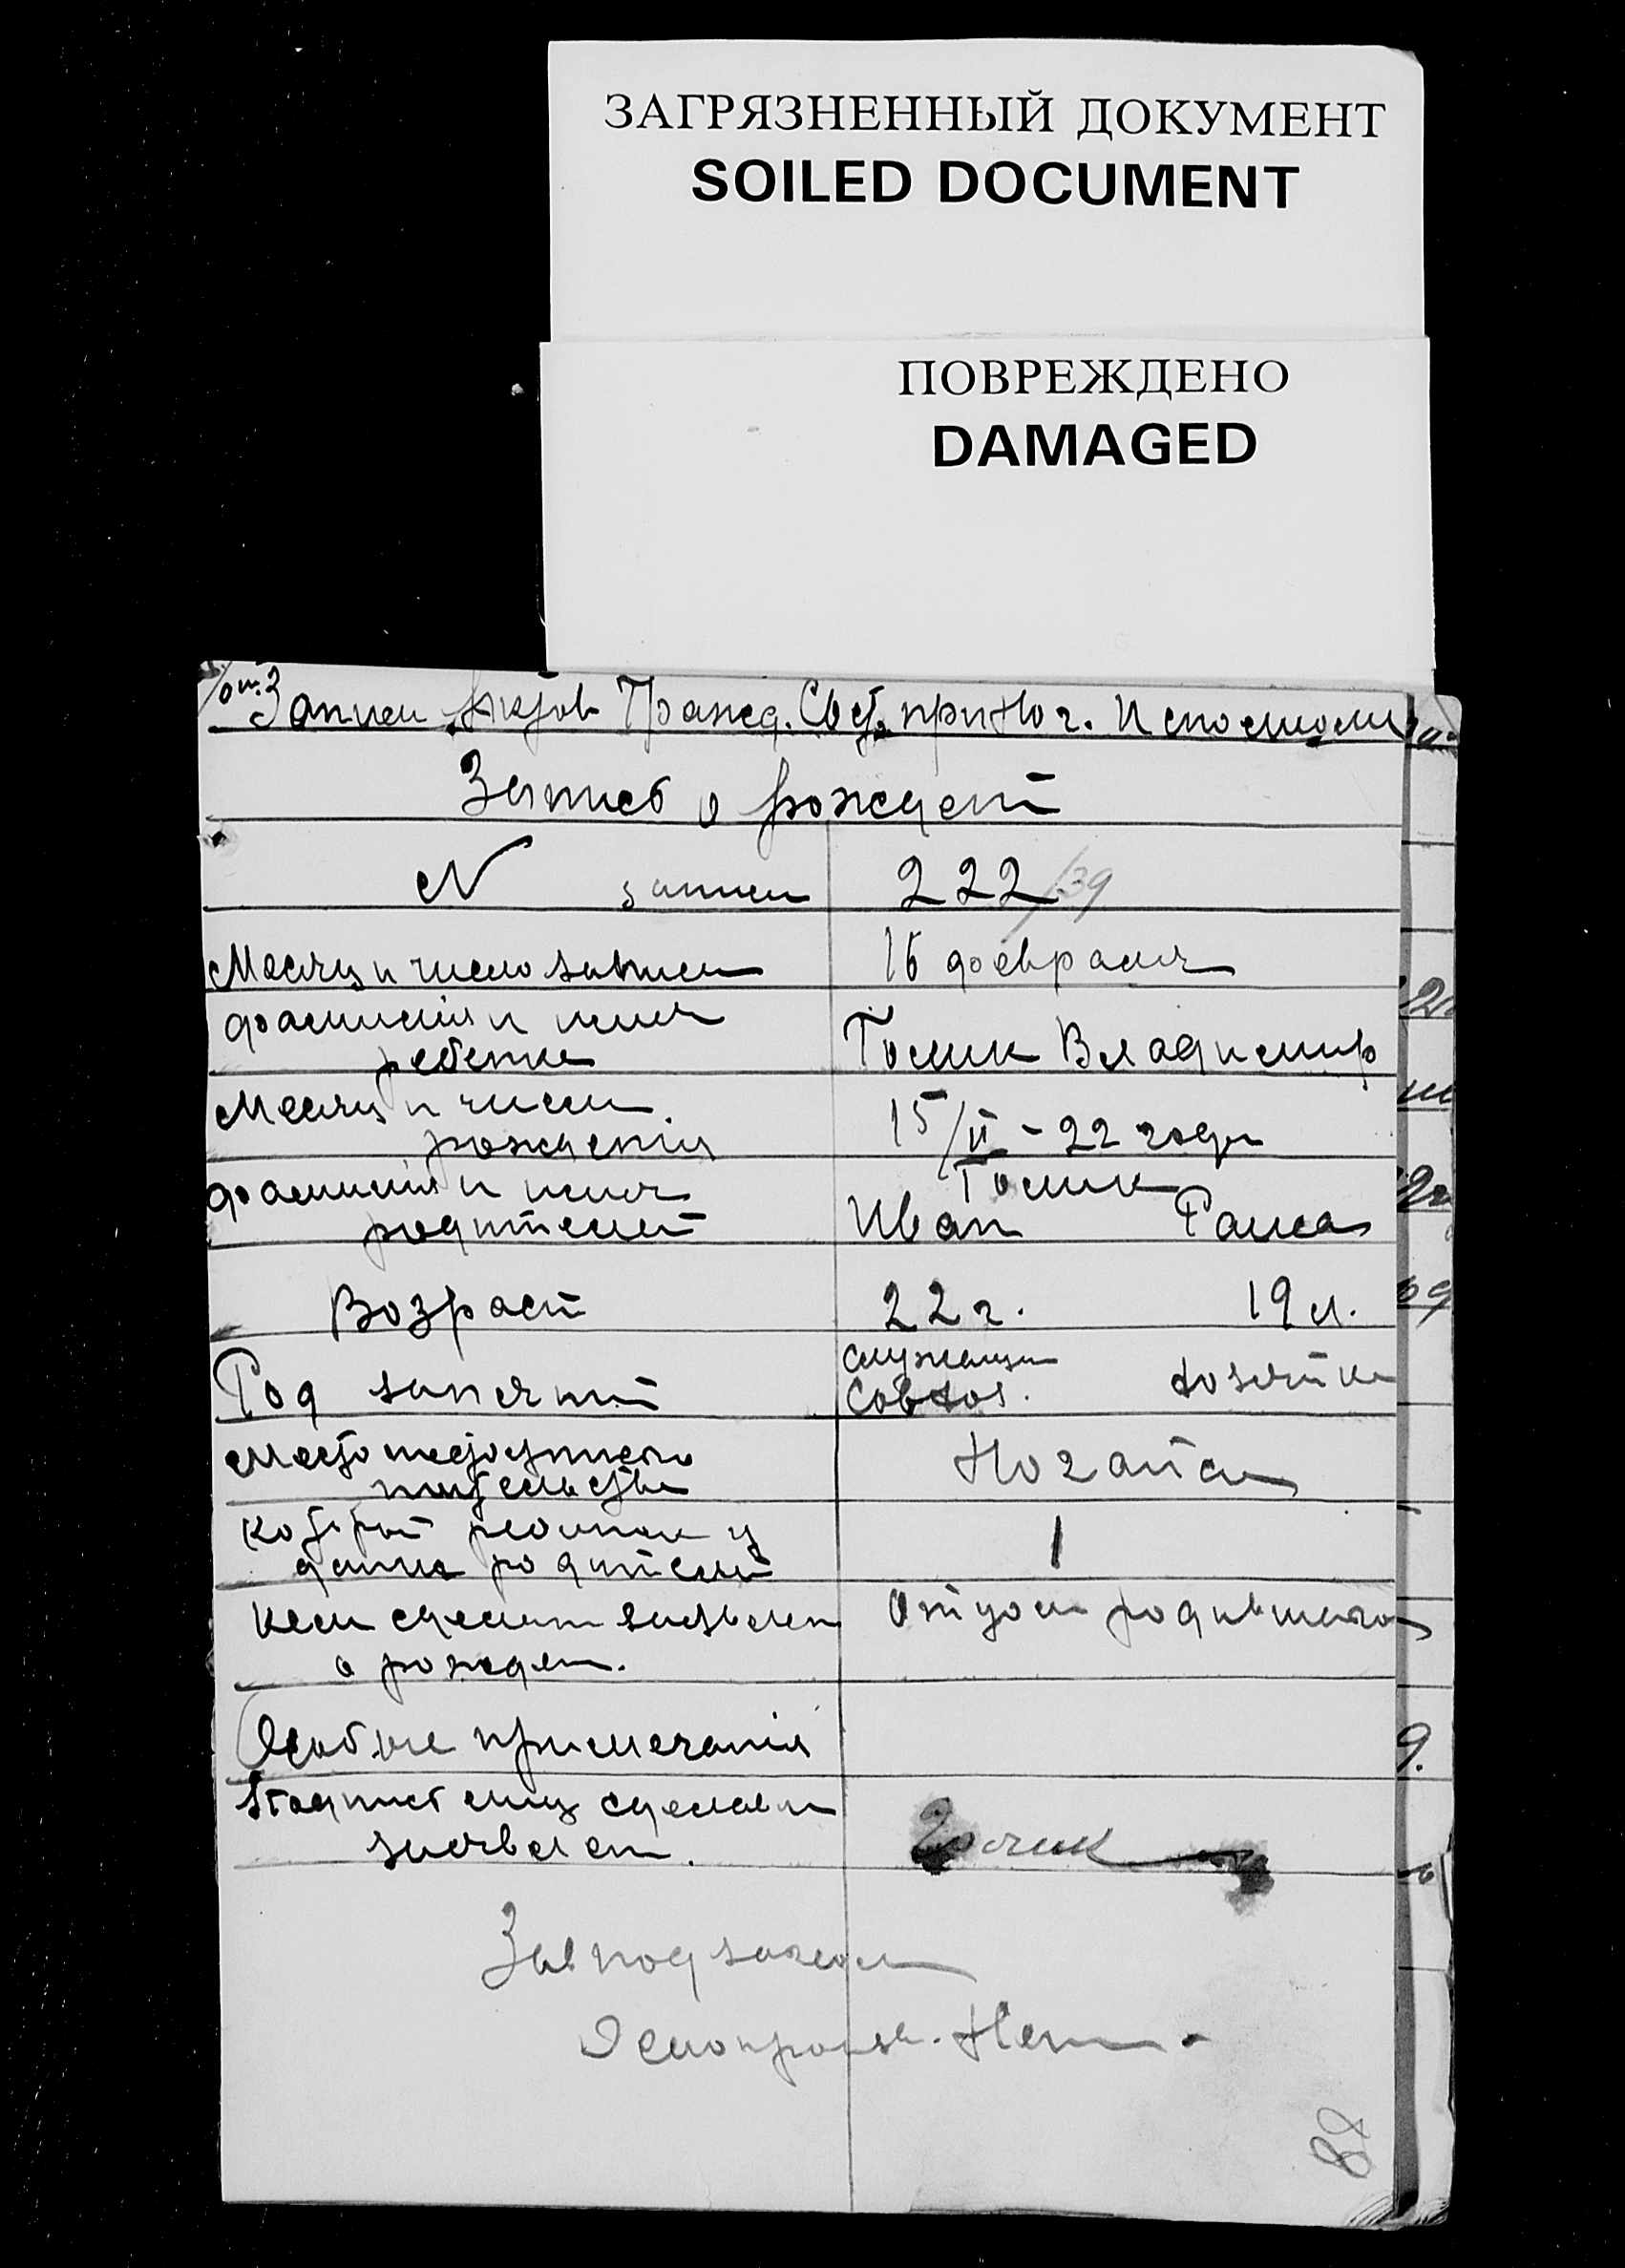 ЗАГРЯЗНЕННЫЙ ДОКУМЕНТ
SOILED DOCUMENT
ПОВРЕЖДЕНО
DAMAGED
Записи Актов Гражд. Сост. при Ног.
Запись о рожден
N записи 222/39
Месяц и число записи 16 февраля
фамилія и имя
ребенка Гомик Владимир
Месяц и число
рожденія 15/II - 22 года
фамилія и имя Гомик
родителей Иван Раиса
Возраст 22 г. 19 л.
Род занятий служащи
Совхоз. хозяйка
место постоянного
жительства Ногайск
который ребенок у
данных родителей 1
Кем сделано заявлен Отцом родившагося
о рожден.
Особые примечанія
Подпись лиц сделавш
заявлен.
Зав подзагсом
88